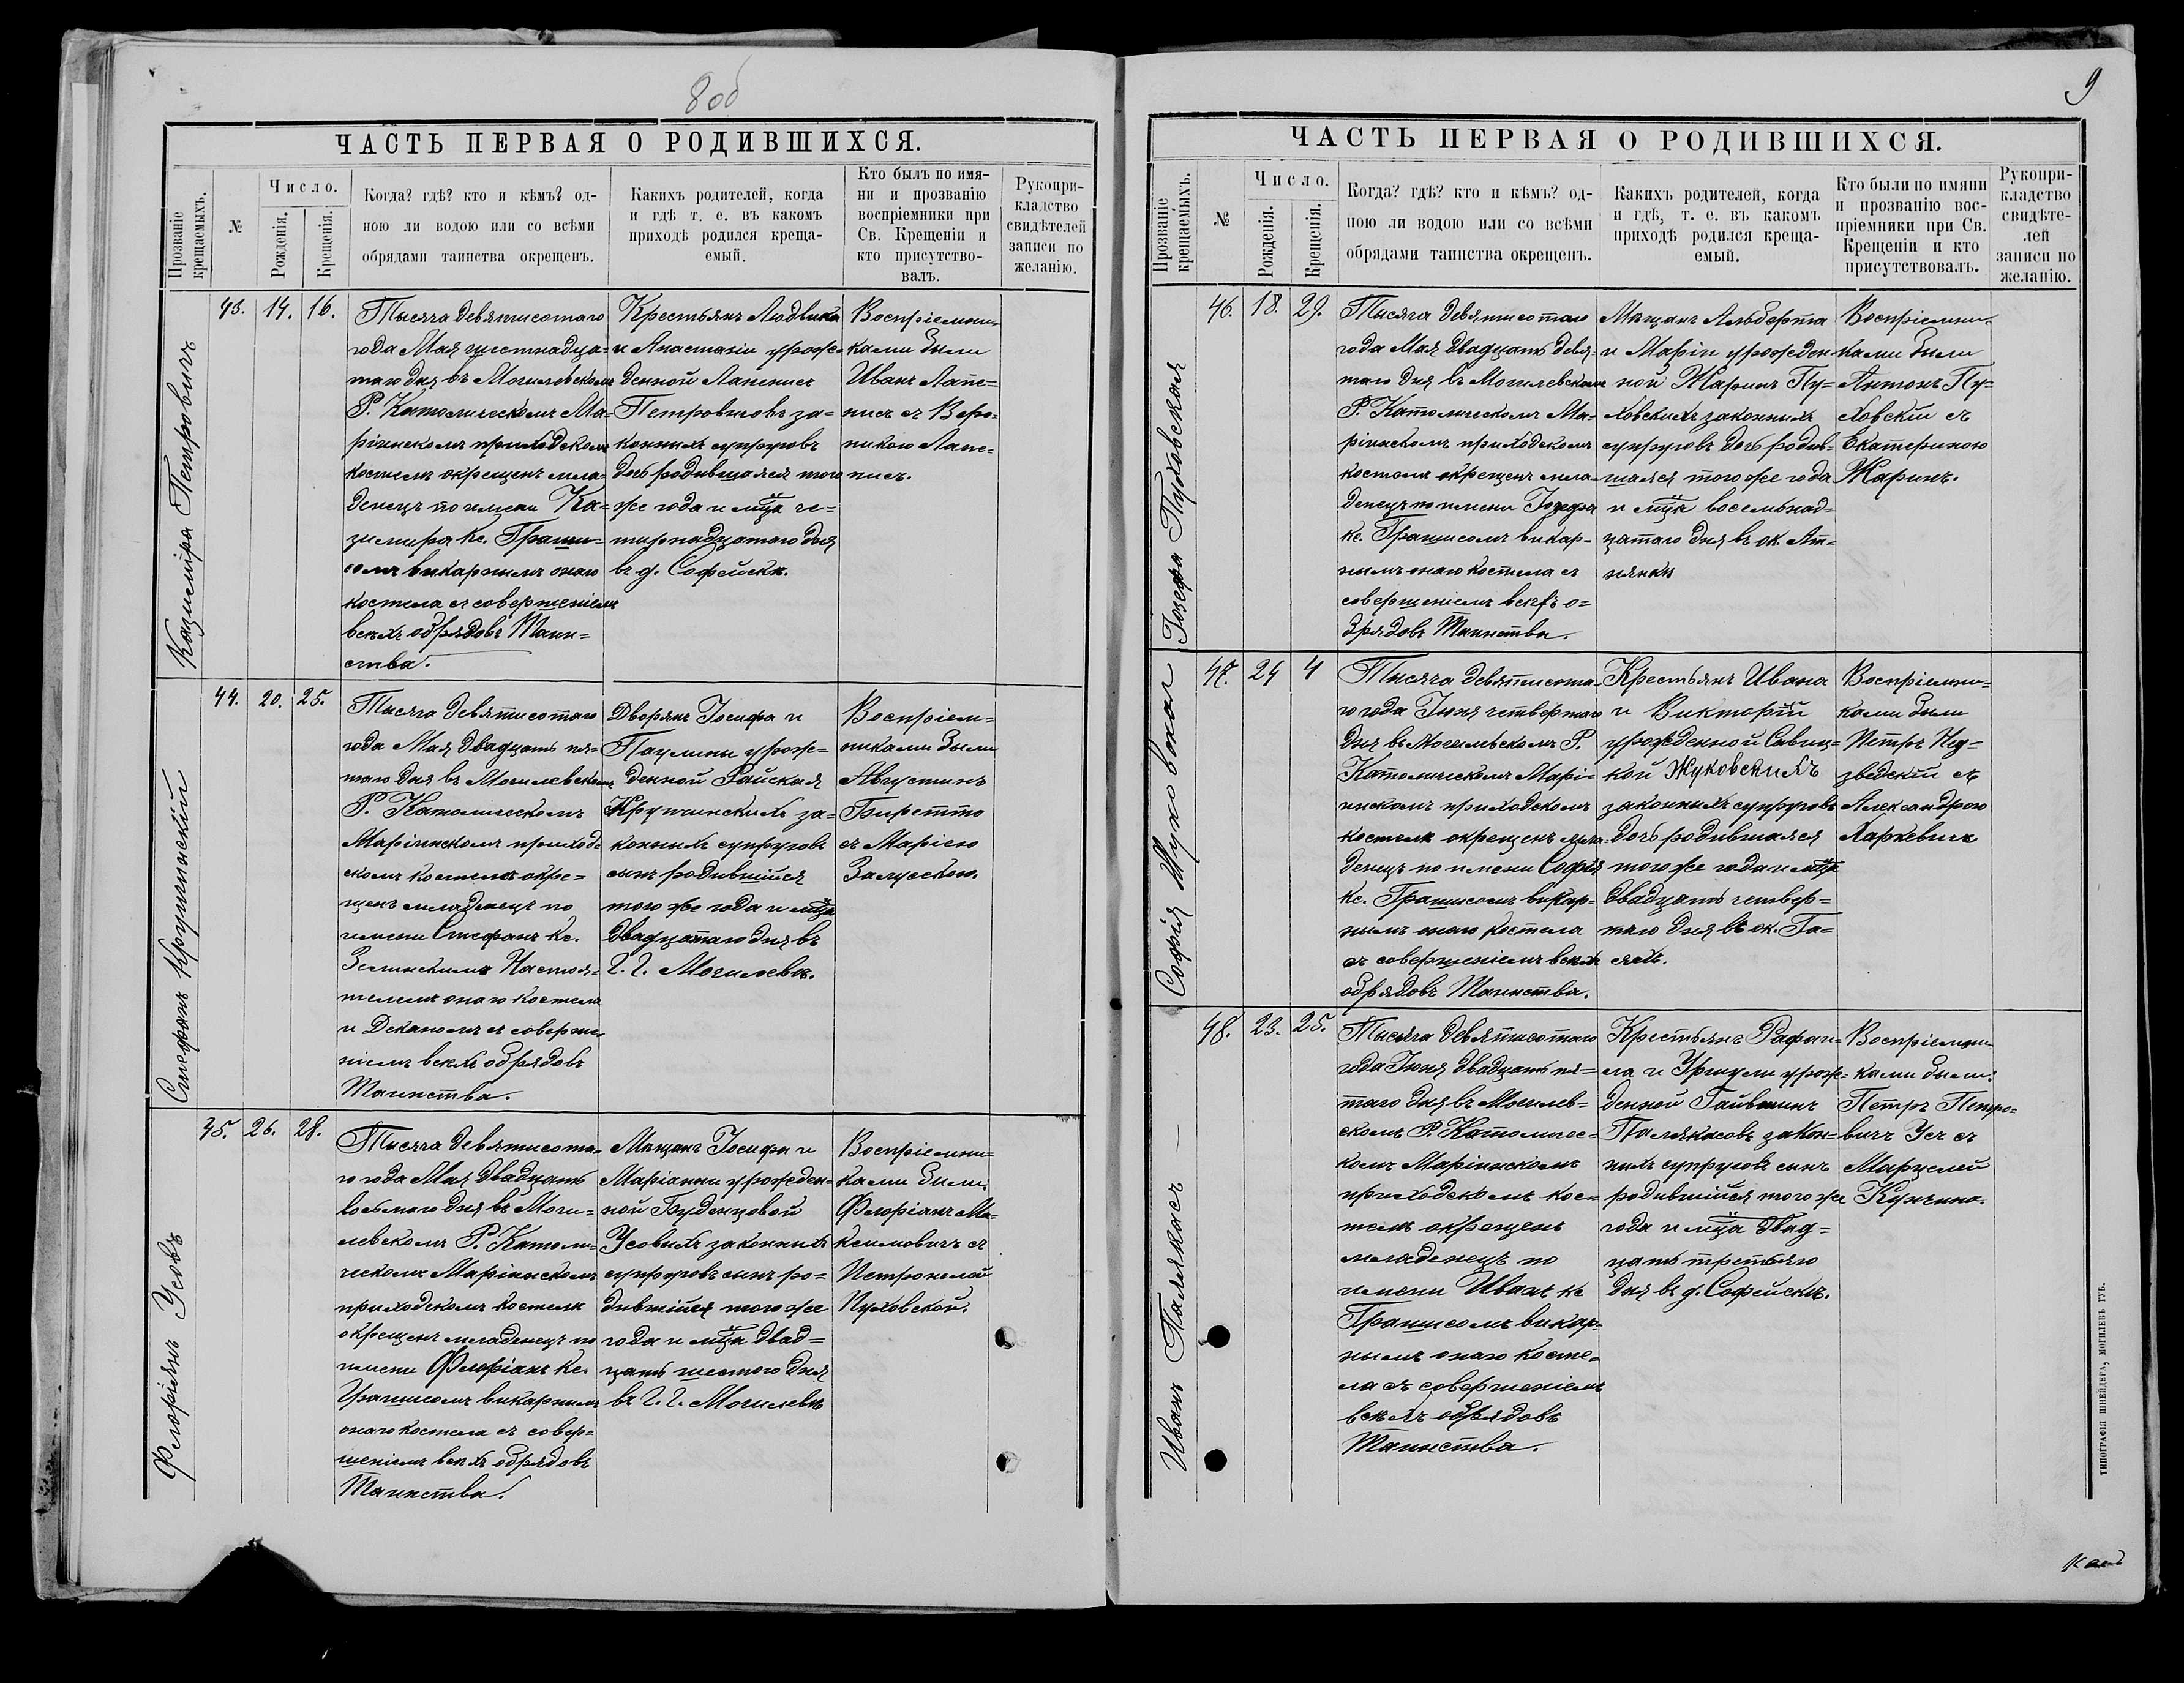 8 об
ЧАСТЬ ПЕРВАЯ О РОДИВШИХСЯ.
Прозваніе крещаемыхъ.
№
Число.
Рожденія.
Крещенія.
Когда? гдѣ? кто и кѣмъ? од-
ною ли водою или со всѣми
обрядами таинства окрещенъ.
Какихъ родителей, когда
и гдѣ т. е. въ какомъ
приходѣ родился креща-
емый.
Кто былъ по имя-
ни и прозванію
воспріемники при
Св. Крещеніи и
кто присутство-
валъ.
Рукопри-
кладство
свидѣтелей
записи по
желанію.
Казиміра Петровичъ
43. 14. 16.
Тысяча девятисотаго
года Мая шестнадца-
таго дня въ Могилевскомъ
Р. Католическомъ Ма-
ріинскомъ приходскомъ
костелѣ окрещенъ мла-
денецъ по имени Ка-
зимира Кс.
сомъ викарнымъ онаго
костела съ совершеніемъ
всѣхъ обрядовъ Таин=
ства.
Крестьянъ Людвика
и Анастасіи урож-
денной Лапенисъ
Петровичовъ за-
конныхъ супруговъ
дочь родившаяся того
же года и мца че=
тырнадцатаго дня
въ д. Софейскѣ.
Воспріемни-
ками были
Иванъ Лапе=
нисъ съ Веро-
никою Лапе-
нисъ.
Стефанъ Кручинскій
44. 20. 25.
Тысяча девятисотаго
года Мая двадцать пя-
таго дня въ Могилевскомъ
Р. Католическомъ
Маріинскомъ приход-
скомъ костелѣ окре=
щенъ младенецъ по
имени Стефанъ Кс.
Зелинскимъ Настоя-
телемъ онаго костела
и Деканомъ съ соверше-
ніемъ всѣхъ обрядовъ
Таинства.
Дворянъ Іосифа и
Паулины урож=
денной Гайская
Кручинскихъ за-
конныхъ супруговъ
сынъ родившійся
того же года и мца
двадцатаго дня въ
Г. Г. Могилевѣ.
Воспріем=
никами были
Августинъ
Биретто
съ Маріею
Залускою.
Флоріянъ Усовъ
45. 26. 28.
Тысяча девятисота-
го года Мая двадцать
восьмаго дня въ Моги=
левскомъ Р. Католи=
ческомъ Маріинскомъ
приходскомъ костелѣ
окрещенъ младенецъ по
имени Флоріанъ Кс.
викарнымъ
онаго костела съ совер=
шеніемъ всѣхъ обрядовъ
Таинства.
Мѣщанъ Іосифа и
Маріанны урожден-
ной Буденцовой
Усовыхъ законныхъ
супруговъ сынъ ро=
дившійся того же
года и мца двад=
цать шестого дня
въ Г. Г. Могилевѣ
Воспріемни=
ками были
Флоріанъ Ма-
ксимовичъ съ
Петронелой
Пуховской.
9
ЧАСТЬ ПЕРВАЯ О РОДИВШИХСЯ.
Прозваніе крещаемыхъ.
№
Число.
Рожденія.
Крещенія.
Когда? гдѣ? кто и кѣмъ? од-
ною ли водою или со всѣми
обрядами таинства окрещенъ.
Какихъ родителей, когда
и гдѣ, т. е. въ какомъ
приходѣ родился креща-
емый.
Кто были по имяни
и прозванію вос-
пріемники при Св.
Крещеніи и кто
присутствовалъ.
Рукопри-
кладство
свидѣте-
лей
записи по
желанію.
Іозефа Пуховская
46. 18. 29.
Тысяча девятисотаго
года Мая двадцать девя-
таго дня въ Могилевскомъ
Р. Католическомъ Ма-
ріинскомъ приходскомъ
костелѣ окрещенъ мла-
денецъ по имени Іозефа
кс. викар-
нымъ онаго костела съ
совершеніемъ всѣхъ о=
брядовъ Таинства.
Мѣщанъ Альберта
и Маріи урожден
ной Жаринъ Пу=
ховскихъ законныхъ
супруговъ дочь родив-
шаяся того же года
и мца восемьнад=
цатаго дня въ ок.
Воспріемни-
ками были
Антонъ Пу-
ховскій съ
Екатериною
Жаринъ.
Софія Жуковская
47. 24 4
Тысяча девятисота-
го года Іюня четвертаго
дня въ Могилевскомъ Р.
Католическомъ Марі-
инскомъ приходскомъ
костелѣ окрещенъ мла-
денецъ по имени Софія
Кс. викар-
нымъ онаго костела
съ совершеніемъ всѣхъ
обрядовъ Таинства.
Крестьянъ Ивана
и Викторіи
урожденной Савиц=
кой Жуковскихъ
законныхъ супруговъ
дочь родившаяся
того же года и мца
двадцать четвер=
таго дня въ ок. Га=
Воспріемни=
ками были
Петръ
съ
Александрою
Харкевичъ
Иванъ Полякасъ
48. 23. 25.
Тысяча девятисотаго
года Іюня двадцать пя=
таго дня въ Могилев=
скомъ Р. Католичес-
комъ Маріинскомъ
приходскомъ кос=
телѣ окрещенъ
младенецъ по
имени Иванъ кс
викар=
нымъ онаго косте=
ла съ совершеніемъ
всѣхъ обрядовъ
Таинства.
Крестьянъ Рафаи=
ла и Уршули урож=
денной
Полякасовъ закон=
ныхъ супруговъ сынъ
родившійся того же
года и мца двад=
цать третьяго
дня въ д. Софейскѣ.
Воспріемни
ками были:
Петръ Петро=
вичъ Усъ съ
Марцелей
ТИПОГРАФІЯ ШНЕЙДЕРА, МОГИЛЕВЪ ГУБ.